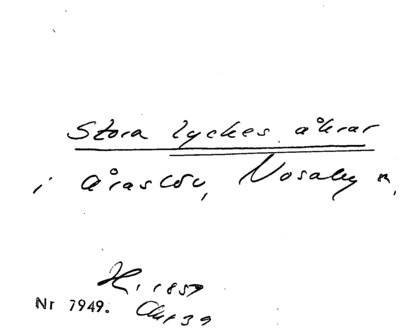 Stora lyckes åkrar
i Åraslöv, Nosaby sn,
H. 1859
Nr 7949. Akt 39